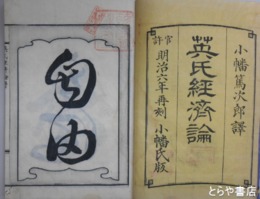 小幡篤次郎譯
英氏経済論
官許
明治六年再刻 小幡氏版
自由
とらや書店